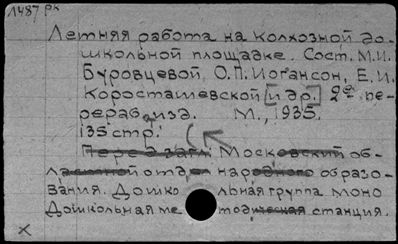 1487 рк
Летняя работа на колхозной до-
школьной площадке. Сост. М.И.
Буровцевой, О.П. Иогансон, Е.И.
Коросташевской [и др.] 2ое пе-
рераб. изд. М., 1935.
135 стр.
Перед загл. Московский об-
ластной отдел народного образо-
вания. Дошкольная группа МОНО
Дошкольная методическая станция.
×